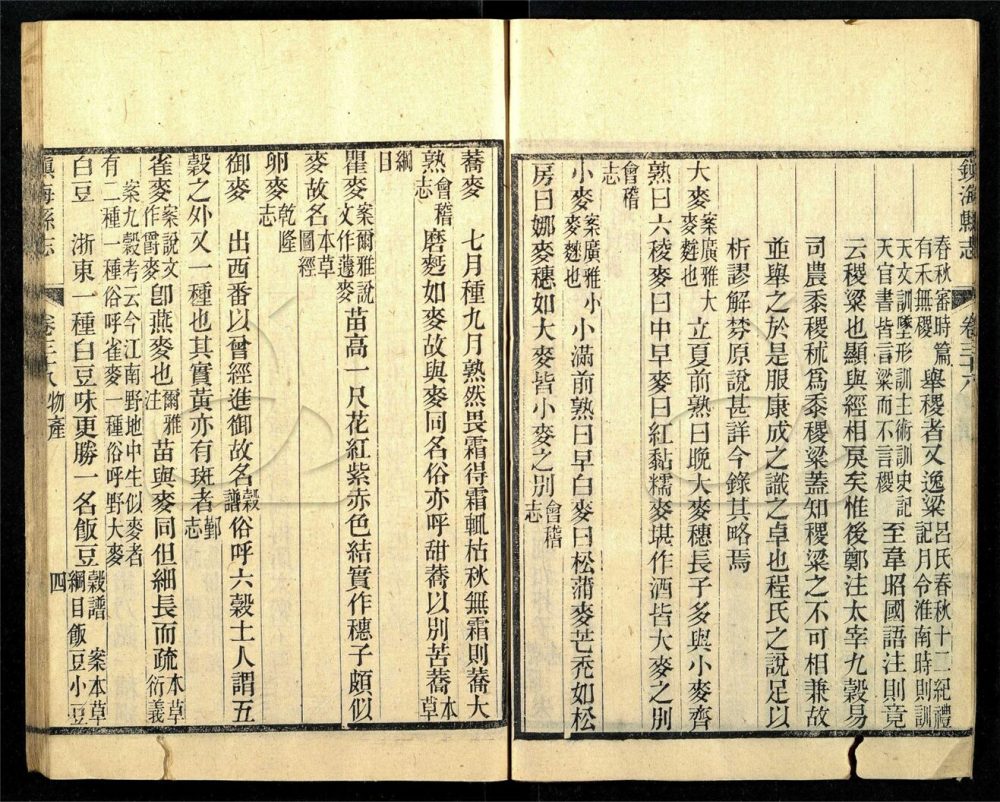 鎮海縣志 卷三十八
春秋審時篇有禾無稷舉稷者又逸粱呂氏春秋十二紀禮記月令淮南時則訓
天文訓墜形訓主術訓史記天官書皆言粱而不言稷至韋昭國語注則竟
云稷粱也顯與經相戾矣惟後鄭注太宰九穀易
司農黍稷秫爲黍稷粱蓋知稷粱之不可相兼故
並舉之於是服康成之識之卓也程氏之說足以
析謬解棼原說甚詳今錄其略焉
大麥案廣雅大麥麰也立夏前熟曰晚大麥穗長子多與小麥齊
熟曰六稜麥曰中早麥曰紅黏糯麥堪作酒皆大麥之別
會稽志
小麥案廣雅小麥麳也小滿前熟曰早白麥曰松蒲麥芒禿如松
房曰娜麥穗如大麥皆小麥之別會稽志
蕎麥 七月種九月熟然畏霜得霜輒枯秋無霜則蕎大
熟會稽志磨麪如麥故與麥同名俗亦呼甜蕎以別苦蕎本草
綱目
瞿麥案爾雅說文作蘧麥苗高一尺花紅紫赤色結實作穗子頗似
麥故名本草圖經
卵麥乾隆志
御麥 出西番以曾經進御故名穀譜俗呼六穀士人謂五
穀之外又一種也其實黃亦有斑者鄞志
雀麥案說文作爵麥卽燕麥也爾雅注苗與麥同但細長而疏本草衍義
案九穀考云今江南野地中生似麥者
有二種一種俗呼雀麥一種俗呼野大麥
白豆 浙東一種白豆味更勝一名飯豆穀譜 案本草綱目飯豆小豆
鎮海縣志 卷三十八 物產 四